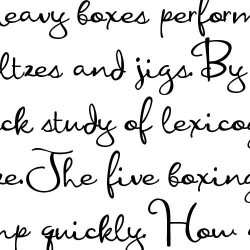 heavy boxes perform
ltzes and jigs. By
ck study of lexicog
ze. The five boxing
mp quickly. How